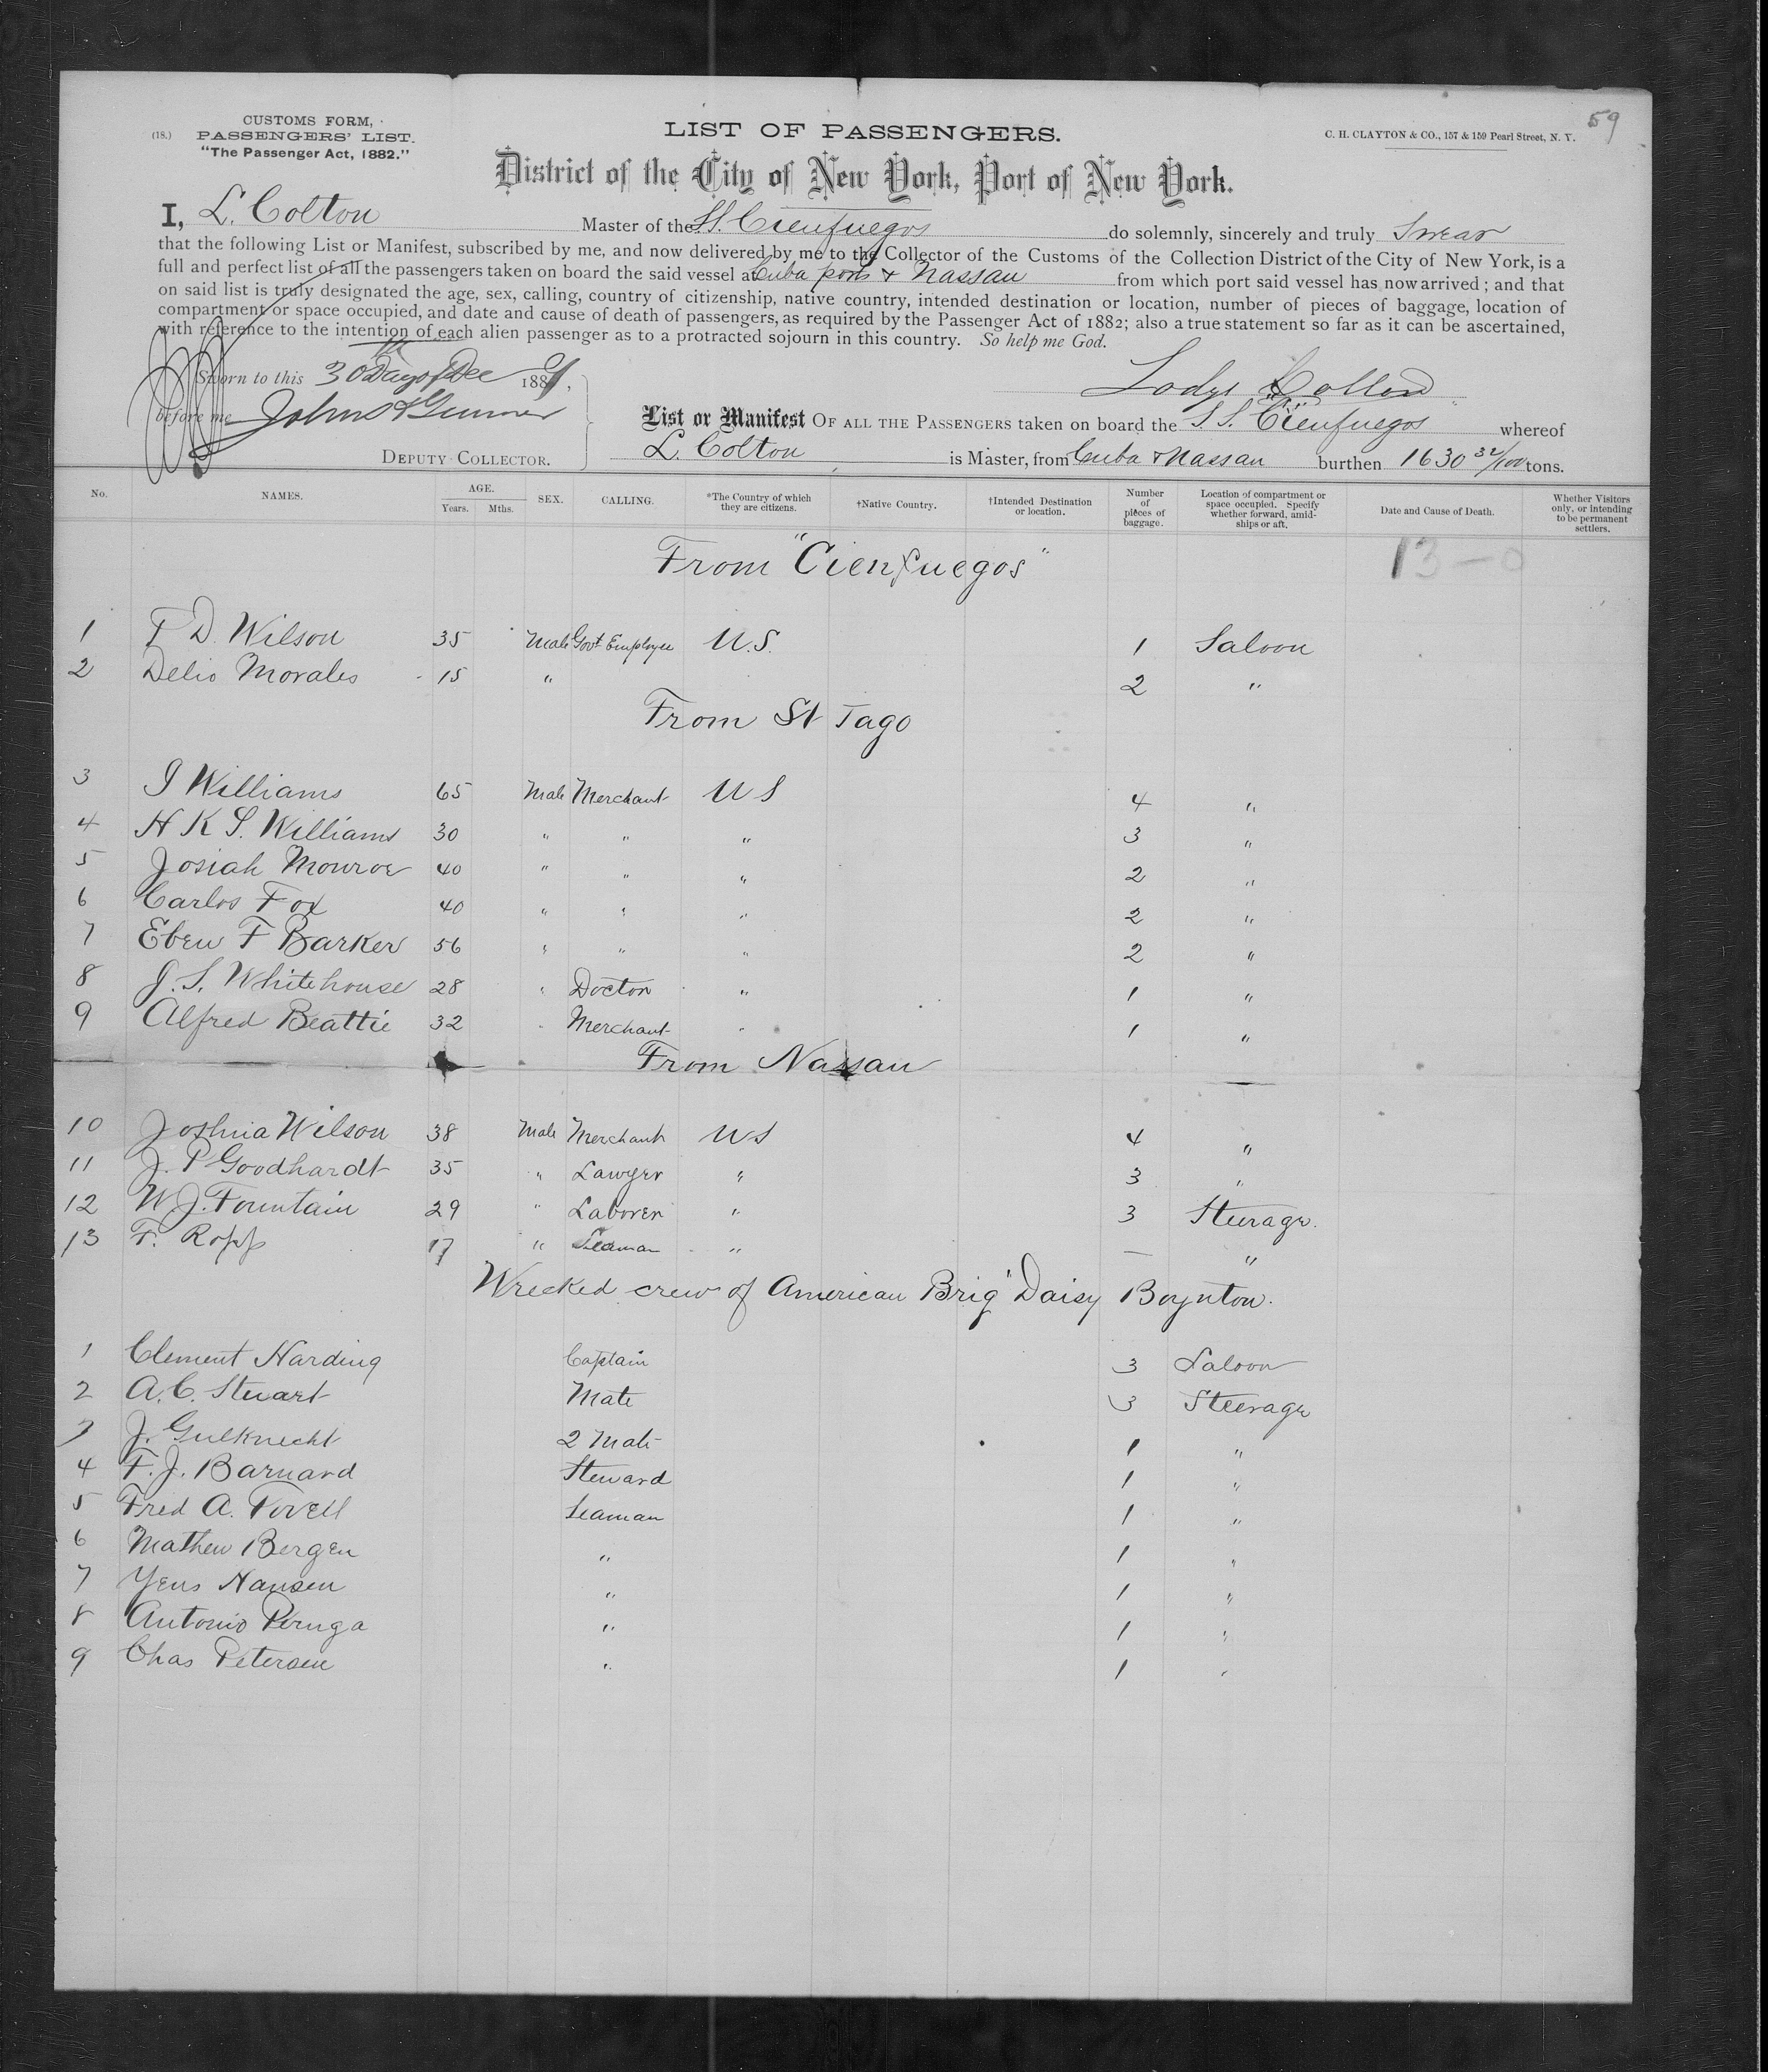 59
CUSTOMS FORM,
(18.) PASSENGERS' LIST.
"The Passenger Act, 1882."
LIST OF PASSENGERS.
C. H. CLAYTON & CO., 157 & 159 Pearl Street, N. Y.
District of the City of New York, Port of New York.
I, L. Colton Master of the SS. Cienfuegos do solemnly, sincerely and truly Swear
that the following List or Manifest, subscribed by me, and now delivered by me to the Collector of the Customs of the Collection District of the City of New York, is a
full and perfect list of all the passengers taken on board the said vessel at Cuba ports & Nassau from which port said vessel has now arrived; and that
on said list is truly designated the age, sex, calling, country of citizenship, native country, intended destination or location, number of pieces of baggage, location of
compartment or space occupied, and date and cause of death of passengers, as required by the Passenger Act of 1882; also a true statement so far as it can be ascertained,
with reference to the intention of each alien passenger as to a protracted sojourn in this country. So help me God.
Sworn to this 30th Day of Dec 188
before me John
DEPUTY COLLECTOR.
Colton
List or Manifest OF ALL THE PASSENGERS taken on board the S S. "Cienfuegos" whereof
L. Colton is Master, from Cuba & Nassau burthen 1630 32/100 tons.
No. NAMES. AGE. Years. Mths. SEX. CALLING. *The Country of which they are citizens. †Native Country. †Intended Destination or location. Number of pieces of baggage. Location of compartment or space occupied. Specify whether forward, amidships or aft. Date and Cause of Death. Whether Visitors only, or intending to be permanent settlers.
From "Cienfuegos"
13 - 0
1 T D. Wilson 35 Male Govt Employee U.S. 1 Saloon
2 Delio Morales 15 " 2 "
From St Tago
3 I Williams 65 Male Merchant U S 4 "
4 H K S. Williams 30 " " " 3 "
5 Josiah Monroe 40 " " " 2 "
6 Carlos Fox 40 " " " 2 "
7 Eben F Barker 56 " " " 2 "
8 J. S. Whitehouse 28 " Doctor " 1 "
9 Alfred Beattie 32 " Merchant " 1 "
From Nassau
10 Joshua Wilson 38 Male Merchant U S 4 "
11 J. P Goodhardt 35 " Lawyer " 3 "
12 W J. Fountain 29 " Laborer " 3 Steerage.
13 F. Ropp 17 " Seaman " — "
Wrecked crew of American Brig "Daisy Boynton.
1 Clement Harding Captain 3 Saloon
2 A. C. Stuart Mate 3 Steerage
3 J. Gulknecht 2 Mate 1 "
4 F. J. Barnard Steward 1 "
5 Fred A. Tovell Seaman 1 "
6 Mathew Bergen " 1 "
7 Yens Hansen " 1 "
8 Antonio Peruga " 1 "
9 Chas Petersen " 1 "